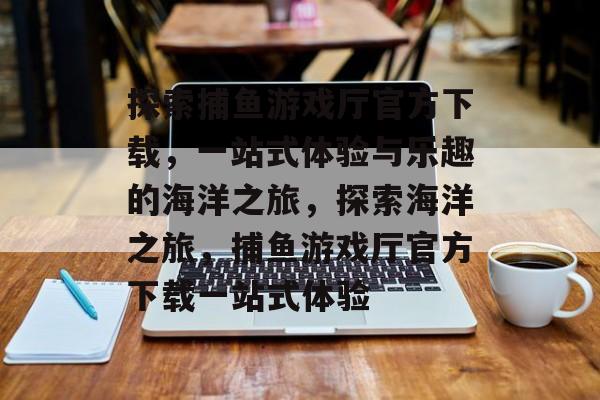 探索捕鱼游戏厅官方下
载，一站式体验与乐趣
的海洋之旅，探索海洋
之旅，捕鱼游戏厅官方
下载一站式体验